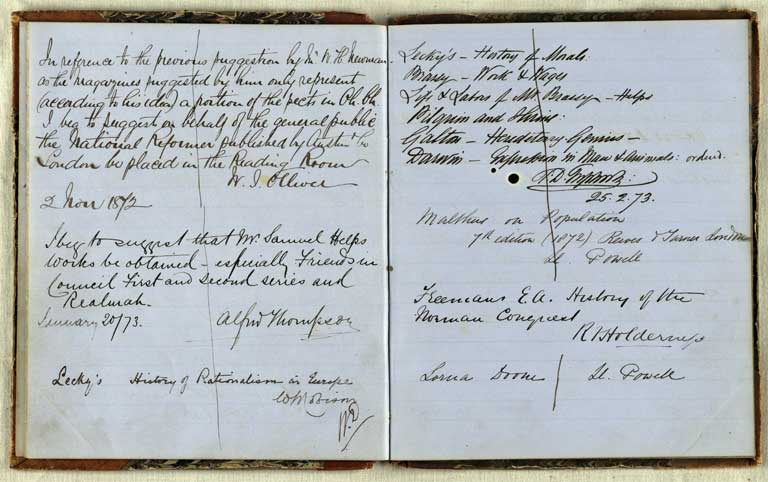 In reference to the previous suggestion by Mr W. H. Newman
as the magazines suggested by him only represent
(according to his idea) a portion of the sects in Ch. Ch.
I beg to suggest on behalf of the general public
the National Reformer published by Austin & Co
London be placed in the Reading Room
W. J. Olliver
2 Novr 1872
I beg to suggest that Mr. Samuel Helps
works be obtained especially Friends in
Council First and second series and
Realmah.
January 20/73.
Alfred Thompson
Lecky's History of Rationalism in Europe
Lecky's - History of Morals:
Brassey - Work & Wages
Life & Labors of Mr Brassey - Helps
Pilgrim and Shrine:
Galton - Hereditary Genius -
Darwin - Expression in Man & Animals: ordered.
25.2.73.
Malthus on Population
7th edition (1872) Reeves & Turner London
Ll. Powell
Freemans E.A. History of the
Norman Conquest
R. Holderness
Lorna Doone Ll. Powell